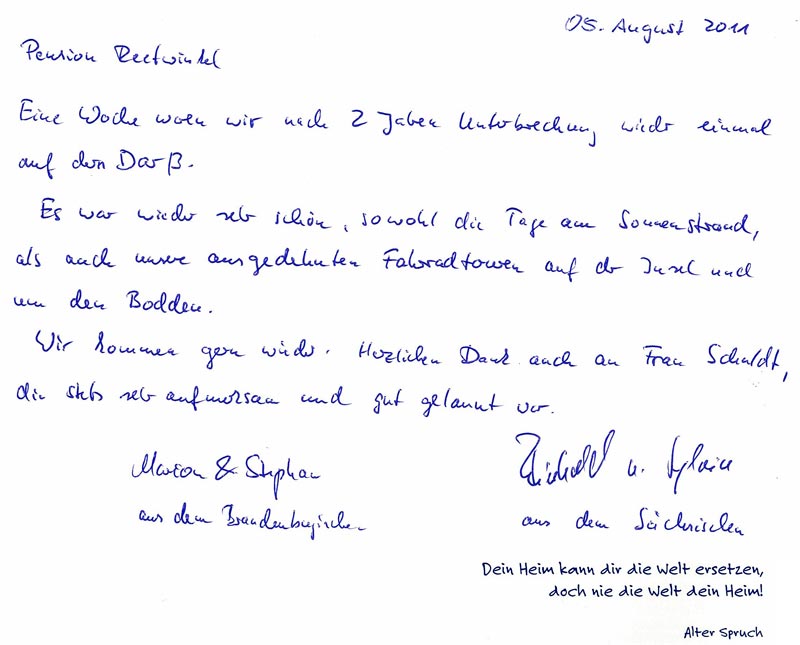 05. August 2011
Pension Reetwinkel
Eine Woche waren wir nach 2 Jahren Unterbrechung wieder einmal
auf dem Darß.
Es war wieder sehr schön, sowohl die Tage am Sonnenstrand,
als auch unsere ausgedehnten Fahrradtouren auf der Insel und
um den Bodden.
Wir kommen gern wieder. Herzlichen Dank auch an Frau Schuldt,
die stets sehr aufmerksam und gut gelaunt war.
Marion & Stephan
aus dem Brandenburgischen
u.
aus dem Sächsischen
Dein Heim kann dir die Welt ersetzen,
doch nie die Welt dein Heim!
Alter Spruch